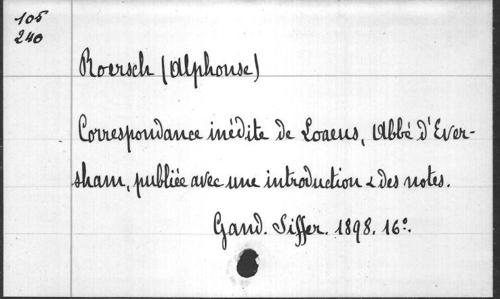 105
240
Roersch (Alphonse)
Correspondance inédite de Loaeus, Abbé d'Ever-
sham, publiée avec une introduction & des notes.
Gand. Siffer. 1898. 16º.